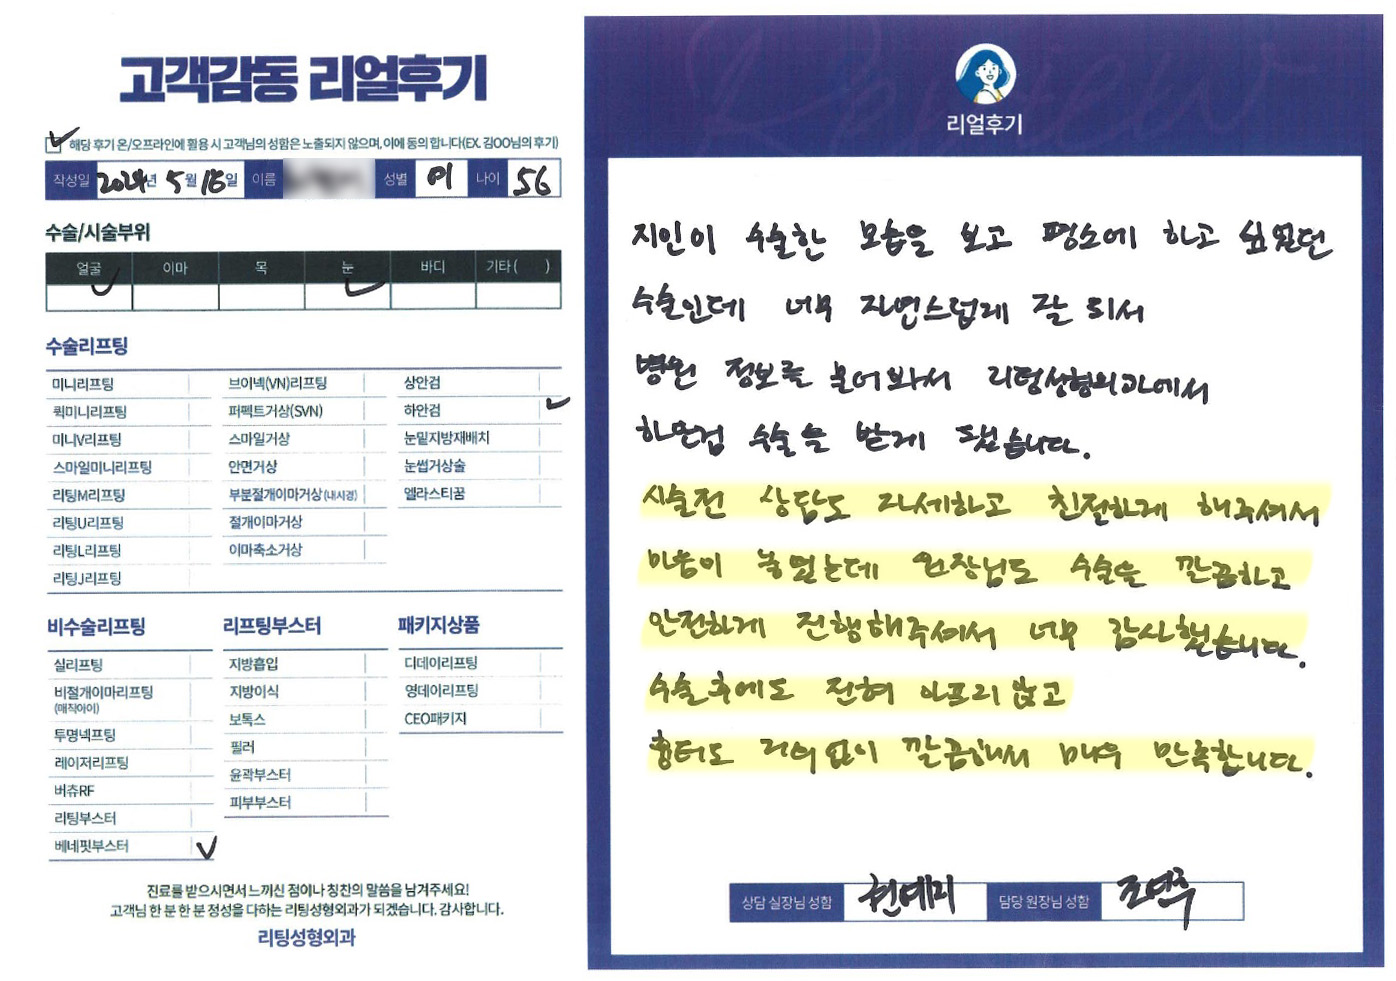 고객감동 리얼후기
해당 후기 온/오프라인에 활용 시 고객님의 성함은 노출되지 않으며, 이에 동의 합니다(EX. 김OO님의 후기)
작성일 2024년 5월 16일 이름 성별 여 나이 56
수술/시술부위
얼굴 이마 목 눈 바디 기타 ( )
수술리프팅
미니리프팅
퀵미니리프팅
미니V리프팅
스마일미니리프팅
리팅M리프팅
리팅U리프팅
리팅L리프팅
리팅J리프팅
브이넥(VN)리프팅
퍼펙트거상(SVN)
스마일거상
안면거상
부분절개이마거상 (내시경)
절개이마거상
이마축소거상
상안검
하안검
눈밑지방재배치
눈썹거상술
엘라스티꿈
비수술리프팅
실리프팅
비절개이마리프팅
(매직아이)
투명넥프팅
레이저리프팅
버츄RF
리팅부스터
베네핏부스터
리프팅부스터
지방흡입
지방이식
보톡스
필러
윤곽부스터
피부부스터
패키지상품
디데이리프팅
영데이리프팅
CEO패키지
진료를 받으시면서 느끼신 점이나 칭찬의 말씀을 남겨주세요!
고객님 한 분 한 분 정성을 다하는 리팅성형외과가 되겠습니다. 감사합니다.
리팅성형외과
Review
리얼후기
지인이 수술한 모습을 보고 평소에 하고 싶었던
수술인데 너무 자연스럽게 잘 되서
병원 정보를 물어봐서 리팅성형외과에서
하안검 수술을 받게 됐습니다.
시술전 상담도 자세하고 친절하게 해주셔서
마음이 놓였는데 원장님도 수술을 깔끔하고
안전하게 진행해주셔서 너무 감사했습니다.
수술후에도 전혀 아프지 않고
흉터도 거의 없이 깔끔해서 매우 만족합니다.
상담 실장님 성함 현예지 담당 원장님 성함 조연후